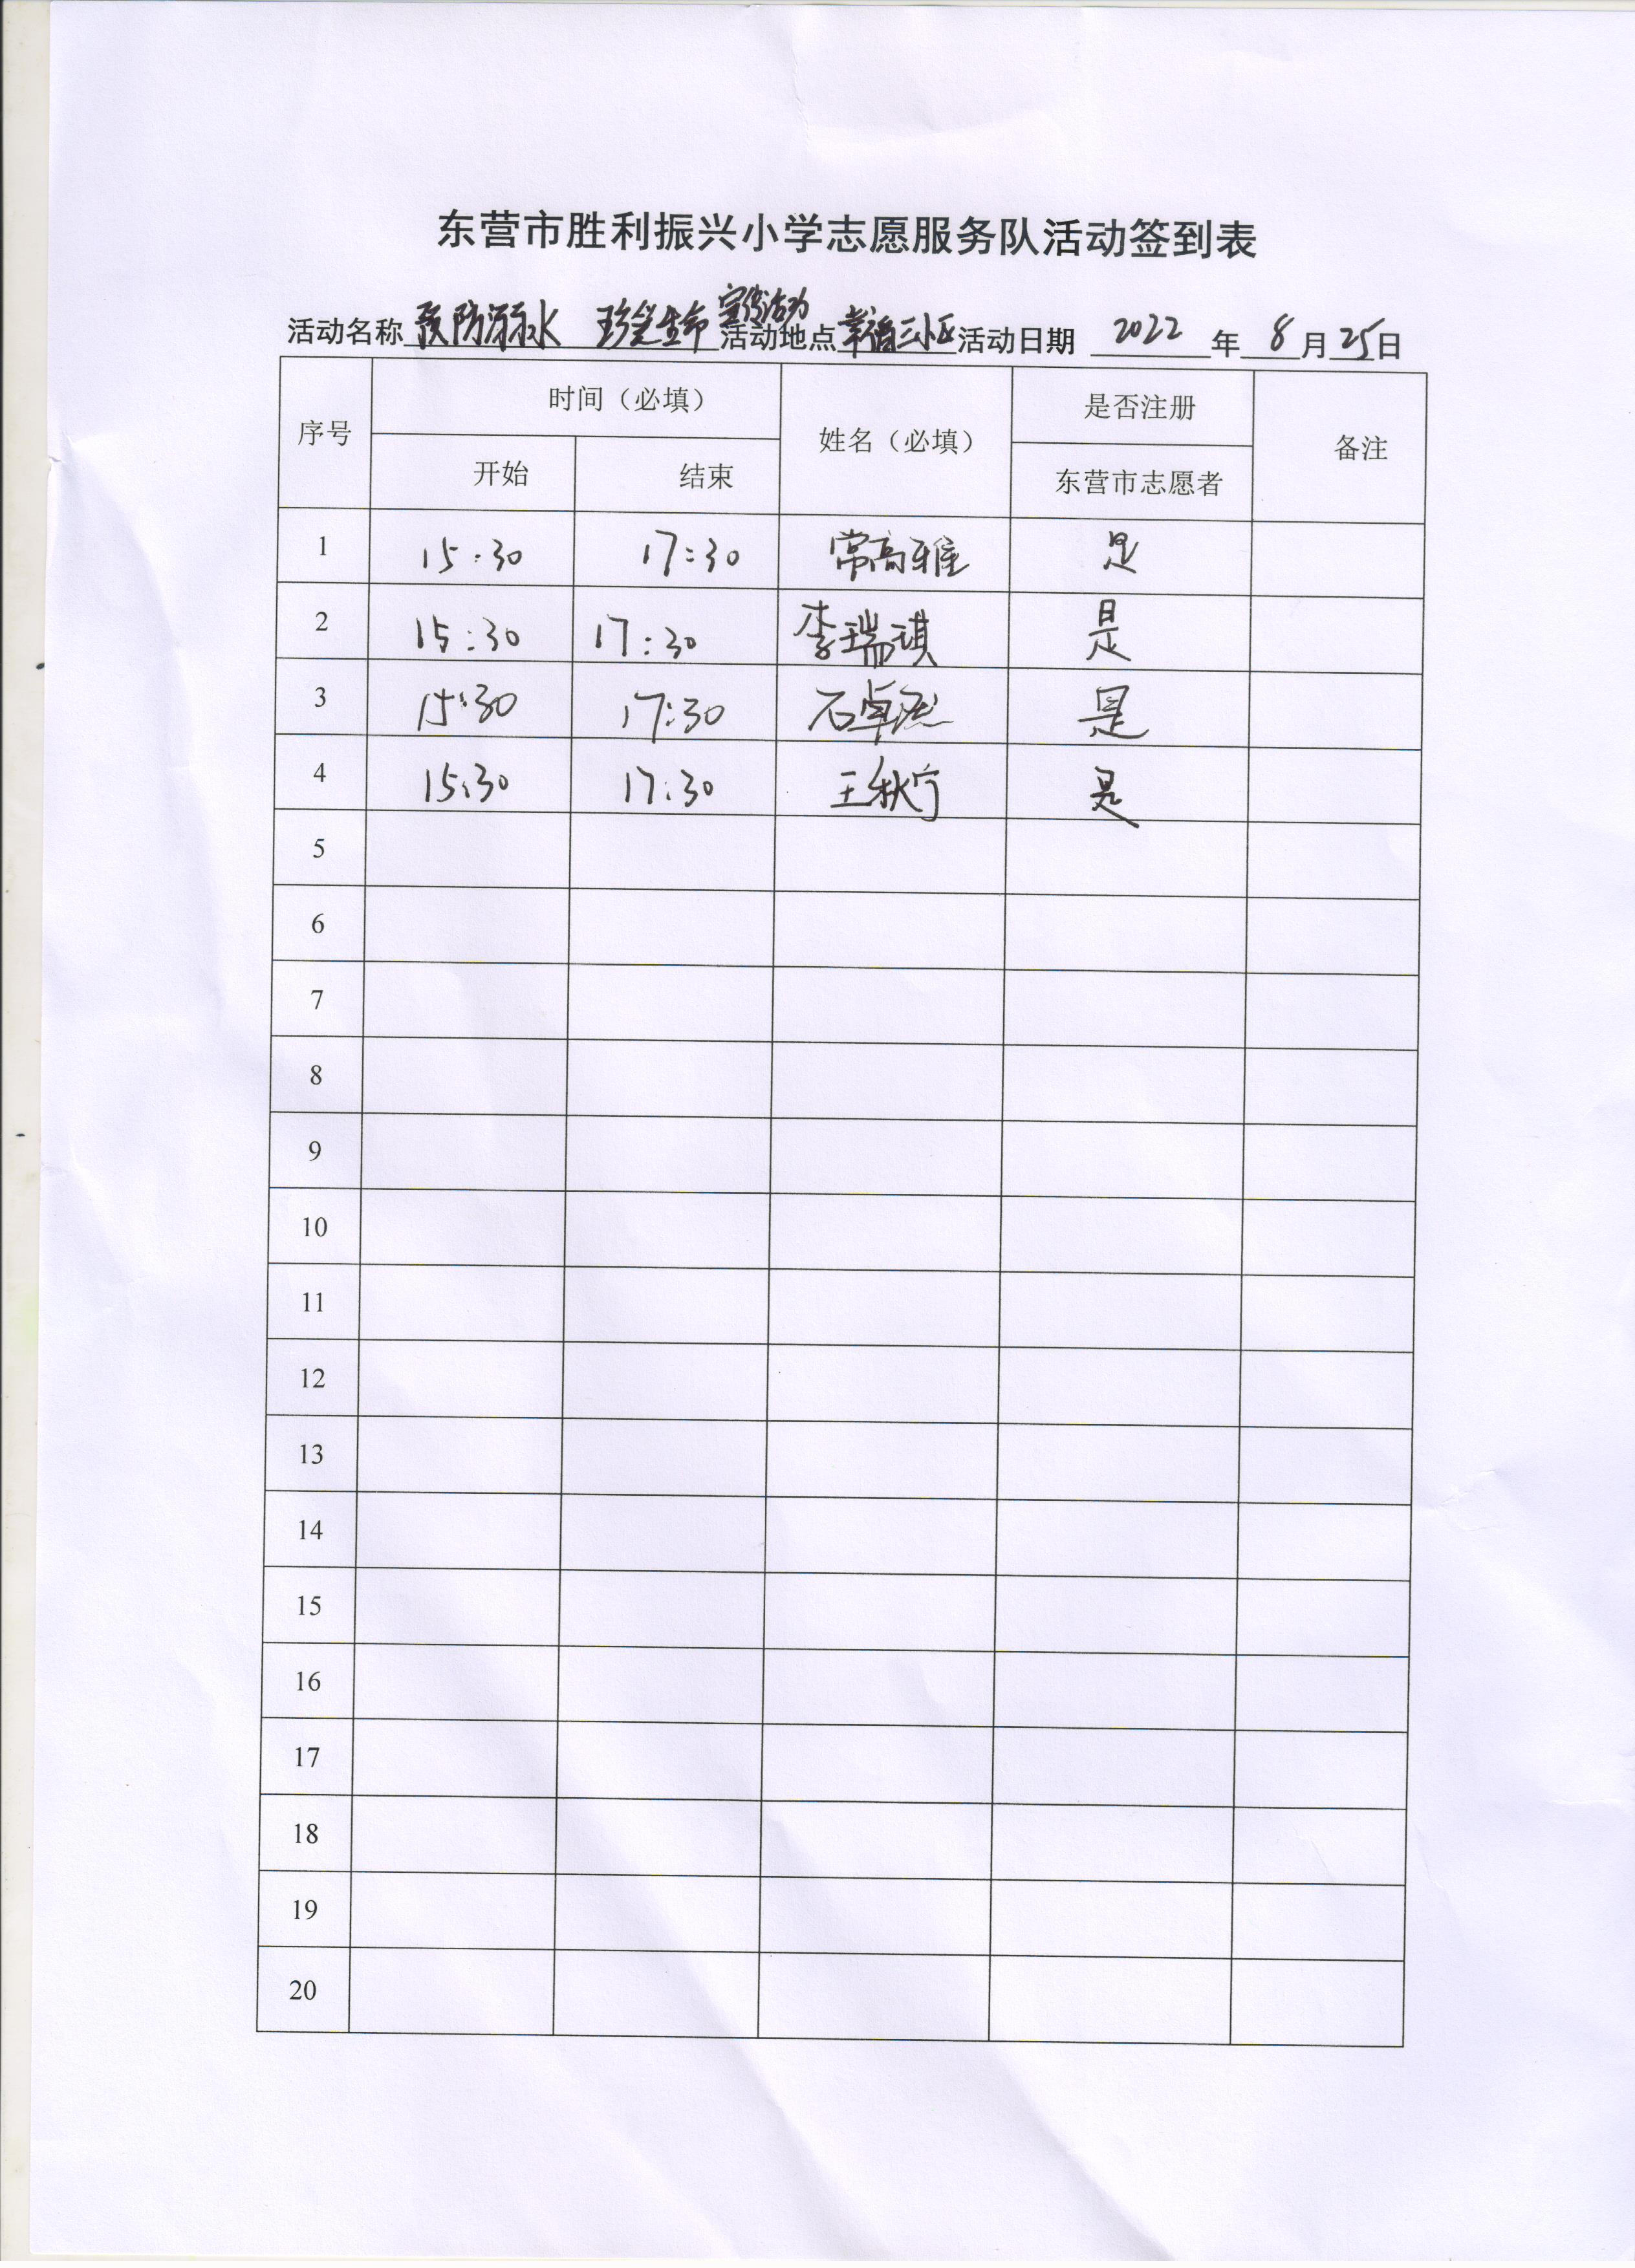 东营市胜利振兴小学志愿服务队活动签到表
活动名称 预防溺水 珍爱生命 宣传活动 活动地点 幸福三小区 活动日期 2022 年 8 月 25 日
序号 时间（必填） 姓名（必填） 是否注册 备注
开始 结束 东营市志愿者
1 15:30 17:30 常高雅 是
2 15:30 17:30 李瑞琪 是
3 15:30 17:30 石卓 是
4 15:30 17:30 王秋宁 是
5
6
7
8
9
10
11
12
13
14
15
16
17
18
19
20